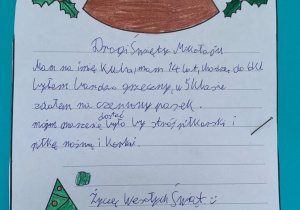 Drogi Święty Mikołaju
Mam na imię Kuba, mam 14 lat, chodzę do 6 kl
byłem bardzo grzeczny, w 5 klasie
zdałem na czerwony pasek.
dostać
moim marzeniem było by strój piłkarski i
piłkę nożną i korki.
Życzę Wesołych Świąt :)